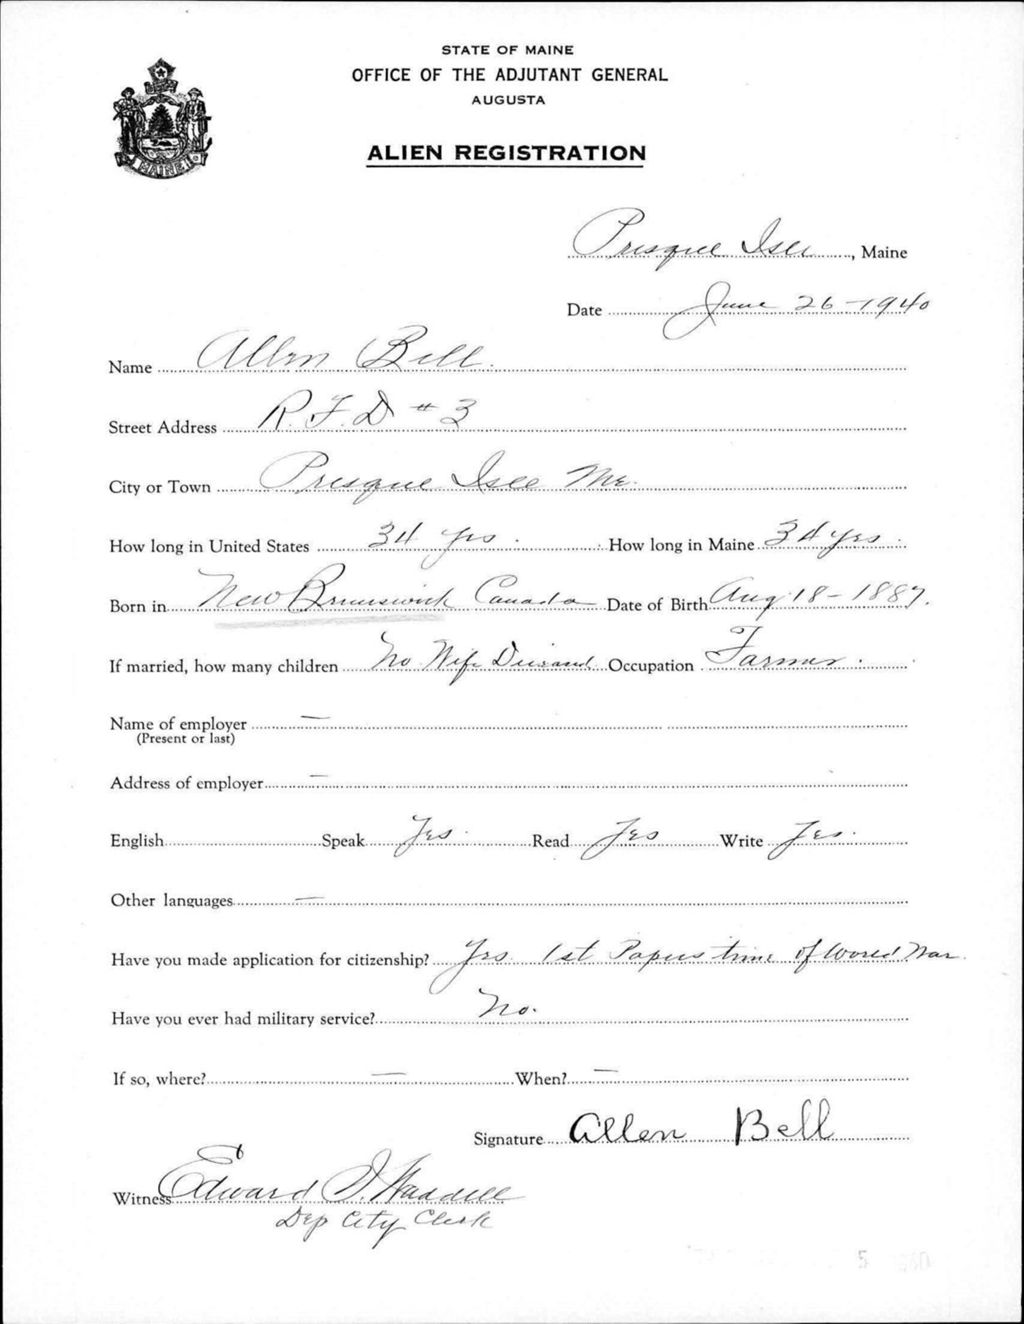 STATE OF MAINE
OFFICE OF THE ADJUTANT GENERAL
AUGUSTA
ALIEN REGISTRATION
MAINE
Presque Isle, Maine
Date June 26-1940
Name Allen Bell.
Street Address R.F.D #3
City or Town Presque Isle Me.
How long in United States 34 yrs. How long in Maine 34 yrs.
Born in New Brunswick Canada Date of Birth Aug 18-1887.
If married, how many children No Wife Occupation Farmer.
Name of employer —
(Present or last)
Address of employer —
English Speak Yes. Read Yes Write Yes.
Other languages —
Have you made application for citizenship? Yes. 1st Papers time of World War.
Have you ever had military service? No.
If so, where? — When? —
Signature Allen Bell
Witness Edward J. Waddell
Dep City Clerk